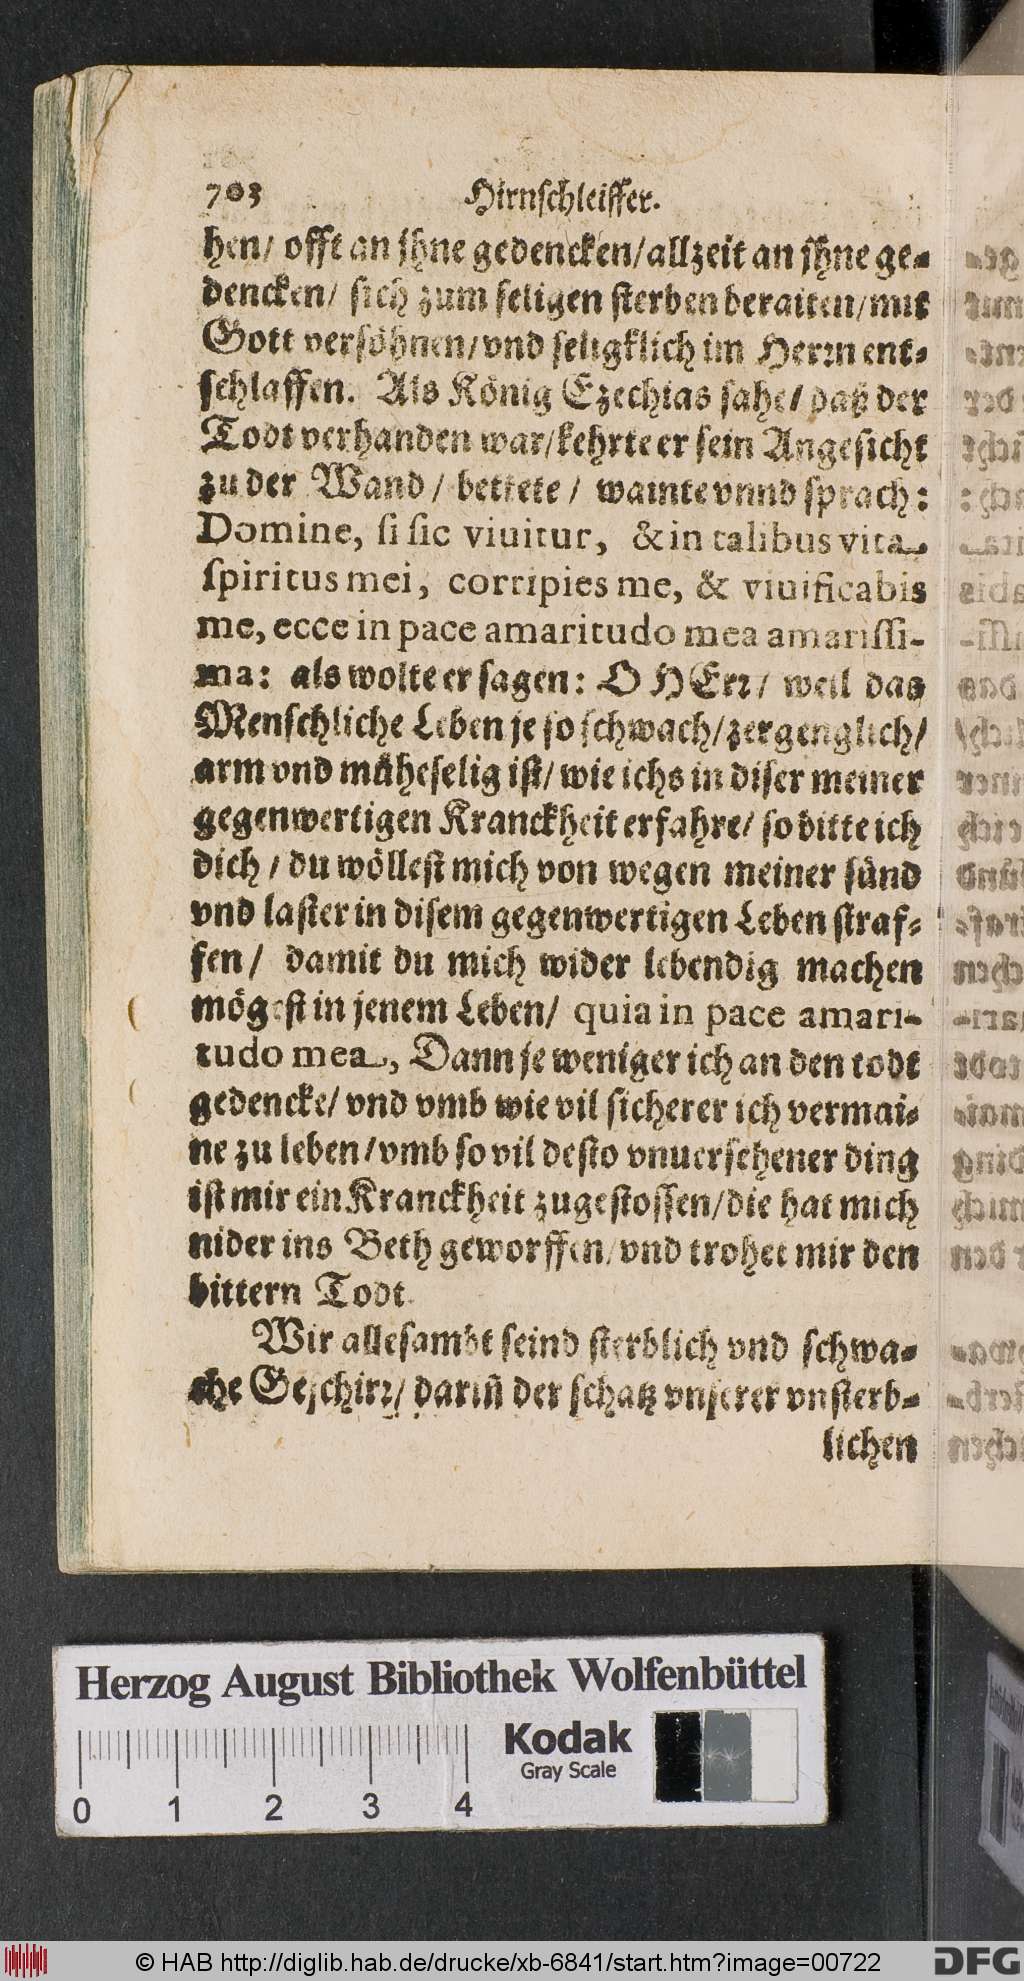 703 Hirnschleiffer.
hen/ offt an jhne gedencken/ allzeit an jhne ge-
dencken/ sich zum seligen sterben beraiten/ mit
Gott versöhnen/ vnd seligklich im Herrn ent-
schlaffen. Als König Ezechias sahe/ daß der
Todt verhanden war/ kehrte er sein Angesicht
zu der Wand/ bettete/ wainte vnnd sprach:
Domine, si sic viuitur, & in talibus vita
spiritus mei, corripies me, & viuificabis
me, ecce in pace amaritudo mea amarissi-
ma: als wolte er sagen: O HErr/ weil das
Menschliche Leben je so schwach/ zergenglich/
arm vnd müheselig ist/ wie ichs in diser meiner
gegenwertigen Kranckheit erfahre/ so bitte ich
dich/ du wöllest mich von wegen meiner sünd
vnd laster in disem gegenwertigen Leben straf-
fen/ damit du mich wider lebendig machen
mögest in jenem Leben/ quia in pace amari-
tudo mea, Dann je weniger ich an den todt
gedencke/ vnd vmb wie vil sicherer ich vermai-
ne zu leben/ vmb so vil desto vnuersehener ding
ist mir ein Kranckheit zugestossen/ die hat mich
nider ins Beth geworffen/ vnd trohet mir den
bittern Todt.
Wir allesambt seind sterblich vnd schwa-
che Geschirr/ dariñ der schatz vnserer vnsterb-
lichen
Herzog August Bibliothek Wolfenbüttel
Kodak
Gray Scale
0 1 2 3 4
© HAB http://diglib.hab.de/drucke/xb-6841/start.htm?image=00722
DFG